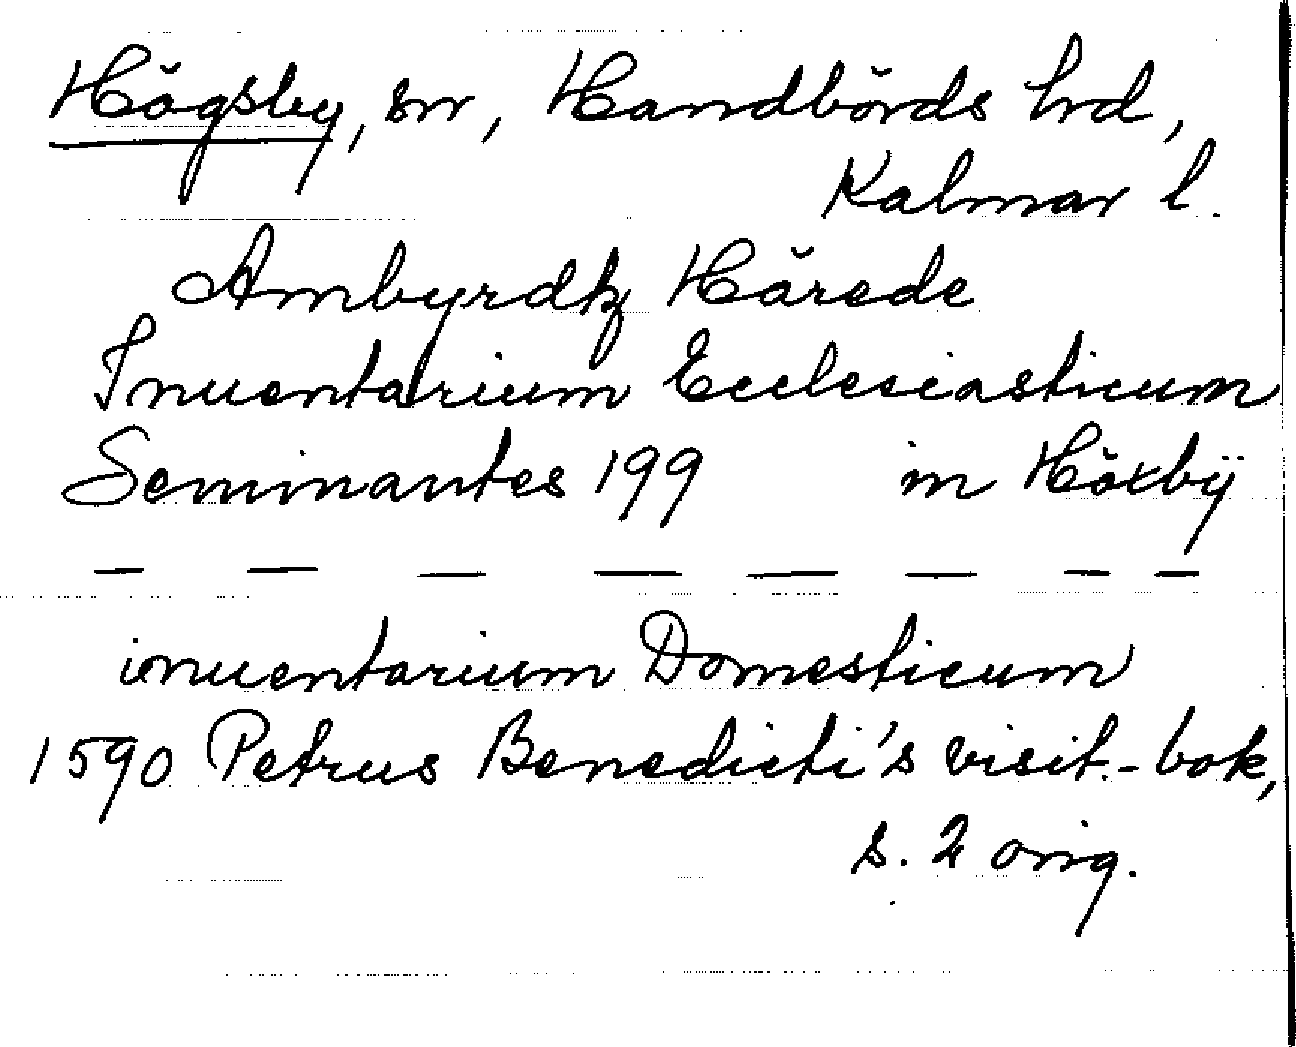 Högsby, sn, Handbörds hrd,
Kalmar l.
Ambyrdtz Härede
Inuentarium Ecclesiasticum
Seminantes 199 in Höxbÿ
— — — — — — — —
inuentarium Domesticum
1590 Petrus Benedicti's visit.-bok,
s. 2 orig.